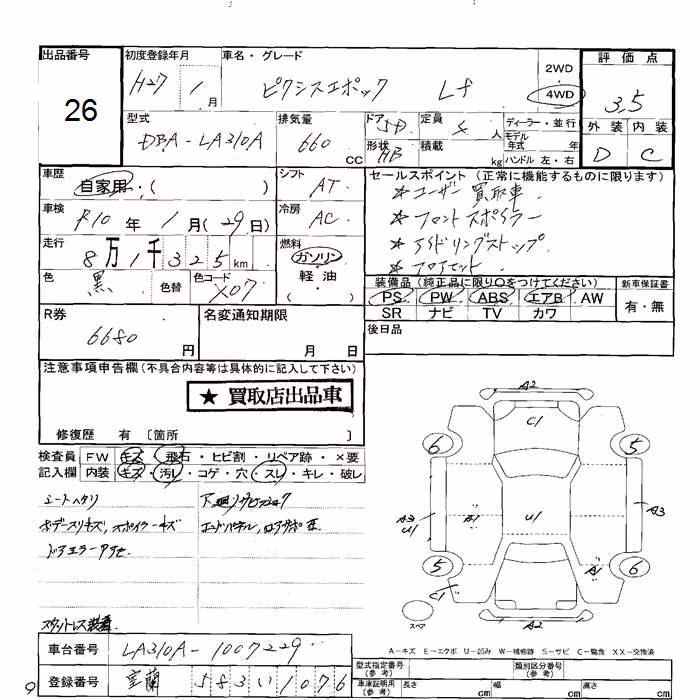 出品番号
26
初度登録年月
H27 1 月
車名・グレード
ピクシスエポック Lf
2WD
4WD
評価点
3.5
外装 内装
D C
型式
DBA-LA310A
排気量
660 cc
ドア 5D
形状 HB
定員 4 人
積載 kg
ディーラー・並行
モデル年式 年
ハンドル 左・右
車歴
自家用・( )
シフト
AT
セールスポイント (正常に機能するものに限ります)
★ユーザー買取車
★フロントスポイラー
★アイドリングストップ
車検
R10 年 1 月(29 日)
冷房
AC
走行
8万1千325km
燃料
ガソリン
軽油
( )
色
黒
色替
色コード
X07
装備品 (純正品に限り〇をつけてください)
PS PW ABS エアB AW
SR ナビ TV カワ
新車保証書
有・無
R券
6680 円
名変通知期限
月 日
後日品
注意事項申告欄(不具合内容等は具体的に記入して下さい)
★ 買取店出品車
修復歴 有 〔箇所 〕
検査員記入欄
FW キズ・飛石・ヒビ割・リペア跡・×要
内装 キズ・汚レ・コゲ・穴・スレ・キレ・破レ
シートヘタリ
ボデースリキズ、スポイラーキズ
スタットレス装着
A2
C1
6
5
A3
U1
A1
U1
A3
5
6
A1
C1
A2
スペア
A-キズ E-エクボ U-凹み W-補修跡 S-サビ C-腐食 XX-交換済
車台番号
LA310A-1007229
登録番号
室蘭 583 い 1076
型式指定番号(参考)
類別区分番号(参考)
車庫証明用(参考)
長さ cm
幅 cm
高さ cm
9